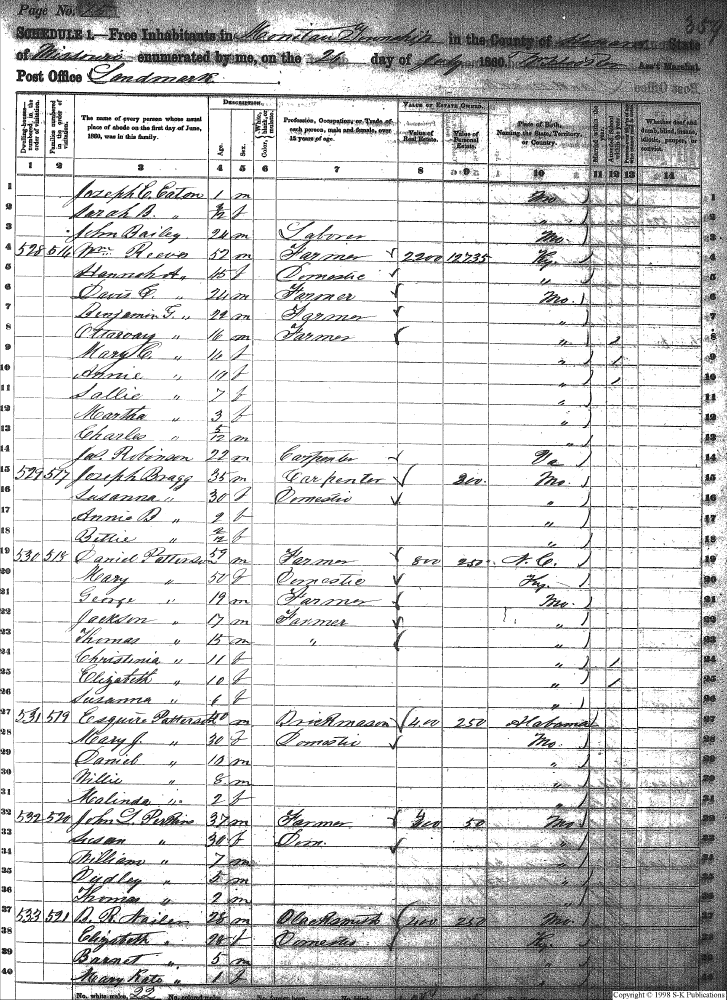 Page No. 75
357
SCHEDULE 1.—Free Inhabitants in Moniteau Township in the County of Howard State
of Missouri enumerated by me, on the 26 day of July 1860. Ass't Marshal.
Post Office Landmark
Dwelling-houses—numbered in the order of visitation.
Families numbered in the order of visitation.
The name of every person whose usual place of abode on the first day of June, 1860, was in this family.
DESCRIPTION.
Age.
Sex.
Color, White, black, or mulatto.
Profession, Occupation, or Trade of each person, male and female, over 15 years of age.
VALUE OF ESTATE OWNED.
Value of Real Estate.
Value of Personal Estate.
Place of Birth, Naming the State, Territory, or Country.
Married within the year.
Attended School within the year.
Whether deaf and dumb, blind, insane, idiotic, pauper, or convict.
1 2 3 4 5 6 7 8 9 10 11 12 13 14
1 Joseph C. Eaton 1 m Mo 1
2 Sarah B. " /12 f " 2
3 John Bailey 24 m Laborer Mo. 3
4 528 516 Wm Reeves 52 m Farmer 2200 12735 Ky. 4
5 Hannah A. " 45 f Domestic " 5
6 Davis C. " 24 m Farmer Mo. 6
7 Benjamin F. " 22 m Farmer " 7
8 Ottaway " 16 m Farmer " 8
9 Mary C. " 14 f " 1 9
10 Annie " 10 f " 1 10
11 Sallie " 7 f " 11
12 Martha " 3 f " 12
13 Charles " 5/12 m " 13
14 Jas. Robinson 22 m Carpenter Va 14
15 529 517 Joseph Bragg 35 m Carpenter 200 Mo. 15
16 Susanna " 30 f Domestic " 16
17 Annie B " 9 f " 17
18 Bettie " 2/12 f " 18
19 530 518 Daniel Patterson 59 m Farmer 800 250 N.C. 19
20 Mary " 50 f Domestic Ky. 20
21 George " 19 m Farmer Mo. 21
22 Jackson " 17 m Farmer " 22
23 Thomas " 15 m " " 23
24 Christinia " 11 f " 1 24
25 Elizabeth " 10 f " 1 25
26 Susanna " 6 f " 26
27 531 519 Esquire Patterson 40 m Brickmason 400 250 Alabama 27
28 Mary J. " 30 f Domestic Mo. 28
29 Daniel " 10 m " 29
30 Willie " 8 m " 30
31 Malinda " 2 f " 31
32 532 520 John L. Perkins 37 m Farmer 300 50 Mo 32
33 Susan " 30 f Dom. " 33
34 William " 7 m " 34
35 Dudley " 5 m " 35
36 Thomas " 2 m " 36
37 533 521 B. R. Nailen 28 m Blacksmith 400 250 Mo. 37
38 Elizabeth " 28 f Domestic Ky. 38
39 Barnet " 5 m " 39
40 Mary Kate " 1 f " 40
No. white males, 22 No. colored males,
Copyright © 1998 S-K Publications